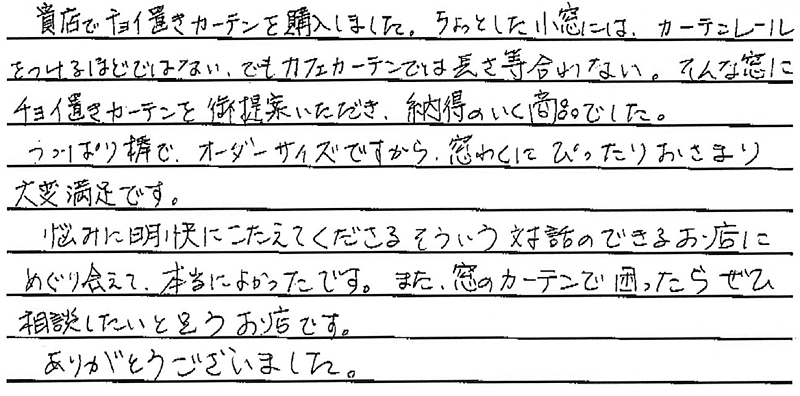 貴店でチョイ置きカーテンを購入しました。ちょっとした小窓には、カーテンレール
をつけるほどではない、でもカフェカーテンでは長さ等合わない。そんな窓に
チョイ置きカーテンを御提案いただき、納得のいく商品でした。
うっぱり棒で、オーダーサイズですから、窓わくにぴったりおさまり
大変満足です。
悩みに明快にこたえてくださるそういう対話のできるお店に
めぐり会えて、本当によかったです。また、窓のカーテンで困ったらぜひ
相談したいと思うお店です。
ありがとうございました。